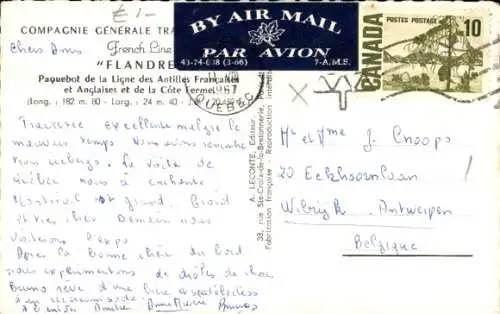 £1-
COMPAGNIE GÉNÉRALE TRA
Chers Amis
French Line
"FLANDRE
Paquebot de la Ligne des Antilles Françaises
et Anglaises et de la Côte Ferme
(Long. : 182 m. 80 - Larg. : 24 m. 40
BY AIR MAIL
PAR AVION
43-74-638 (3-66) 7-A.M.S.
POSTES POSTAGE
10
CANADA
1967
QUÉBEC
Traversée excellente malgré le
mauvais temps Nous avons rencontré
trois icebergs. La visite de
Québec nous a enchanté
Montréal est grand. Froid
et très cher Demain nous
visiterons l'expo
Après la bonne chère du bord
nous expérimentons de drôles de choses
Bruno rêve d'une bière
Amitiés Anne Marie Bruno
A. LECONTE, Editeur
38, rue Ste-Croix-de-la-Bretonnerie,
Fabrication française - Reproduction interdite
Mr et Mme J. Choops
20 Eekhoornlaan
Wilrijk Antwerpen
Belgique